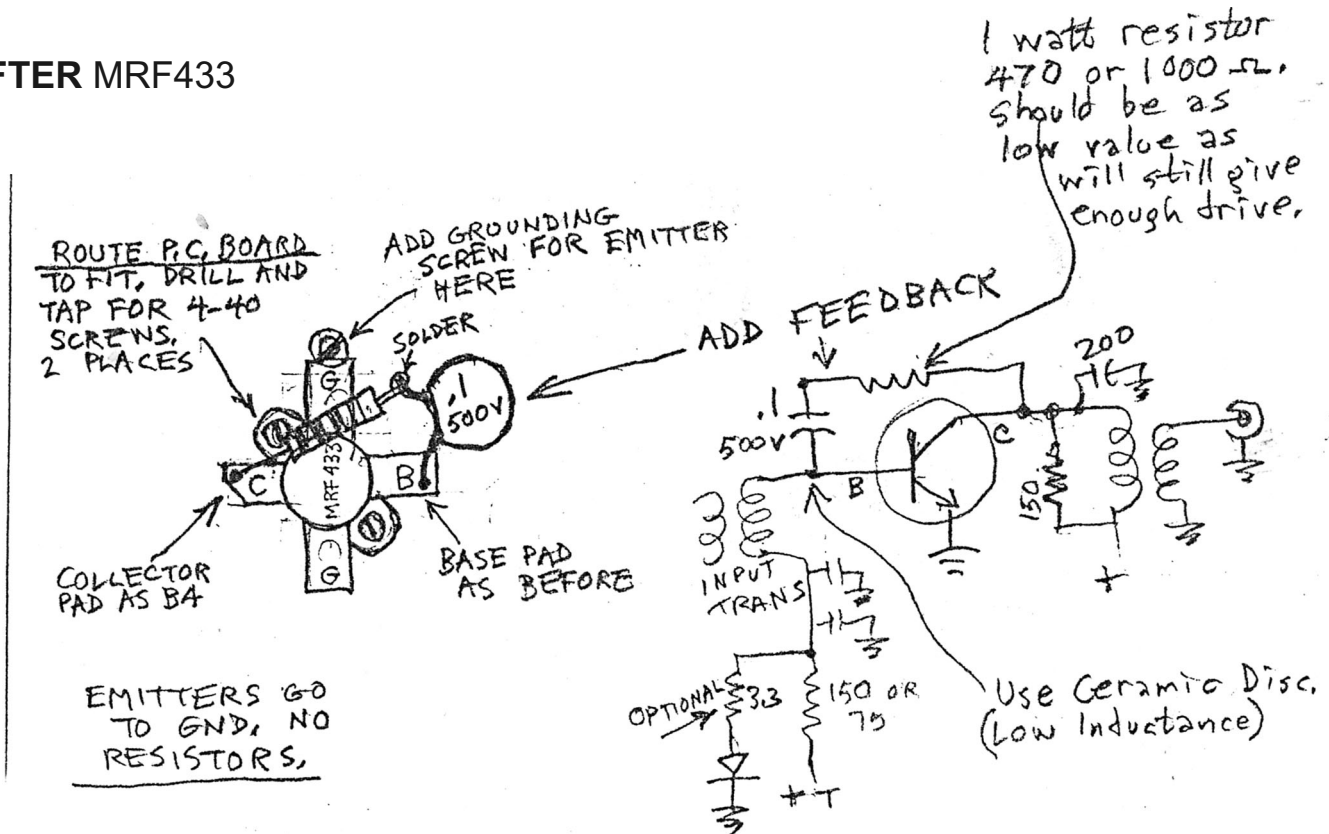 FTER MRF433
1 watt resistor
470 or 1000 Ω.
should be as
low value as
will still give
enough drive.
ROUTE P.C. BOARD
TO FIT, DRILL AND
TAP FOR 4-40
SCREWS.
2 PLACES
ADD GROUNDING
SCREW FOR EMITTER
HERE
SOLDER
ADD FEEDBACK
G
.1
500V
C
MRF433
B
G
COLLECTOR
PAD AS B4
BASE PAD
AS BEFORE
EMITTERS GO
TO GND, NO
RESISTORS,
200
.1
500V
B
C
150
+
INPUT
TRANS
OPTIONAL
33
150 OR
75
Use Ceramic Disc.
(Low Inductance)